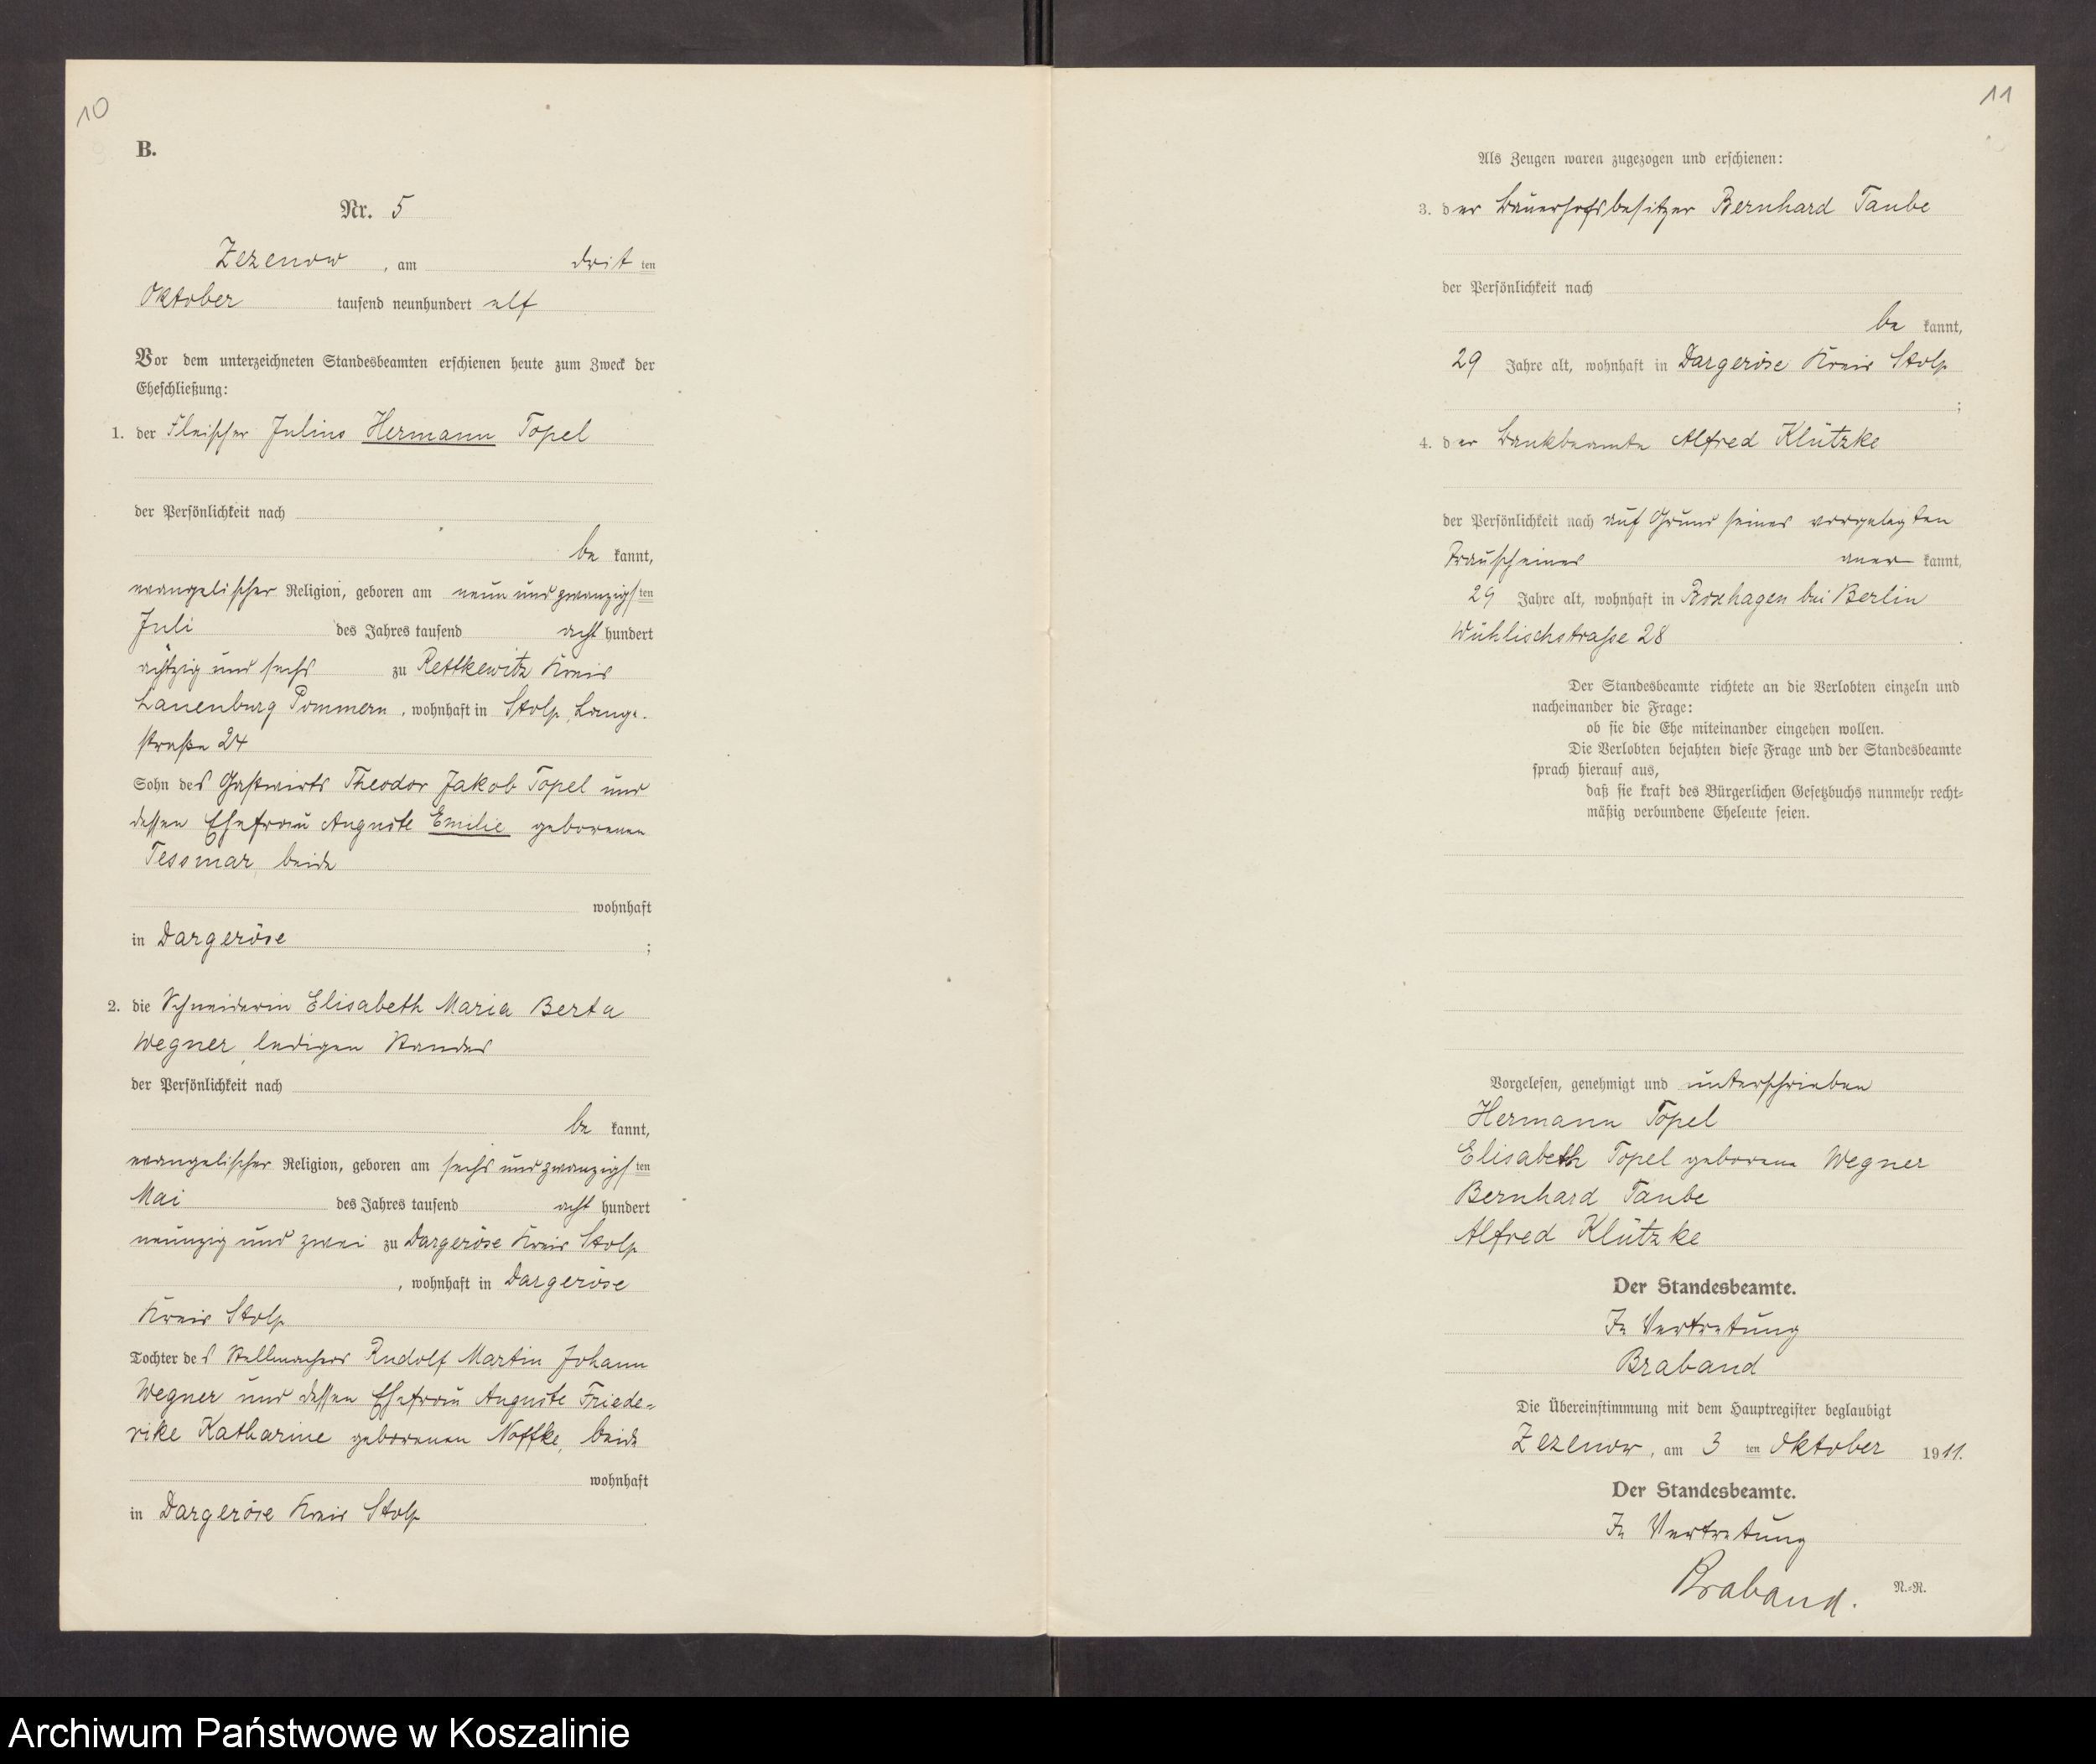 10
B.
Nr. 5
Zezenow, am dritten
Oktober tausend neunhundert elf
Vor dem unterzeichneten Standesbeamten erschienen heute zum Zweck der
Eheschließung:
1. der Fleischer Julius Hermann Topel
der Persönlichkeit nach
be kannt,
evangelischer Religion, geboren am neun und zwanzigsten
Juli des Jahres tausend acht hundert
achtzig und sechs zu Rettkewitz Kreis
Lauenburg Pommern, wohnhaft in Stolp, Lange-
straße 24
Sohn des Gastwirts Theodor Jakob Topel und
dessen Ehefrau Auguste Emilie geborenen
Tessmar, beide
wohnhaft
in Dargeröse ;
2. die Schneiderin Elisabeth Maria Berta
Wegner, ledigen Standes
der Persönlichkeit nach
be kannt,
evangelischer Religion, geboren am sechs und zwanzigsten
Mai des Jahres tausend acht hundert
neunzig und zwei zu Dargeröse Kreis Stolp
, wohnhaft in Dargeröse
Kreis Stolp
Tochter des Stellmachers Rudolf Martin Johann
Wegner und dessen Ehefrau Auguste Friede-
rike Katharine geborenen Noffke, beide
wohnhaft
in Dargeröse Kreis Stolp
11
Als Zeugen waren zugezogen und erschienen:
3. der Bauerhofsbesitzer Bernhard Taube
der Persönlichkeit nach
be kannt,
29 Jahre alt, wohnhaft in Dargeröse Kreis Stolp
;
4. der Bankbeamte Alfred Klützke
der Persönlichkeit nach auf Grund seines vorgelegten
Trauscheines aner kannt,
29 Jahre alt, wohnhaft in Boxhagen bei Berlin
Wühlischstraße 28
Der Standesbeamte richtete an die Verlobten einzeln und
nacheinander die Frage:
ob sie die Ehe miteinander eingehen wollen.
Die Verlobten bejahten diese Frage und der Standesbeamte
sprach hierauf aus,
daß sie kraft des Bürgerlichen Gesetzbuchs nunmehr recht-
mäßig verbundene Eheleute seien.
Vorgelesen, genehmigt und unterschrieben
Hermann Topel
Elisabeth Topel geborene Wegner
Bernhard Taube
Alfred Klützke
Der Standesbeamte.
In Vertretung
Braband
Die Übereinstimmung mit dem Hauptregister beglaubigt
Zezenow, am 3 ten Oktober 1911.
Der Standesbeamte.
In Vertretung
Braband.
N.-R.
Archiwum Państwowe w Koszalinie